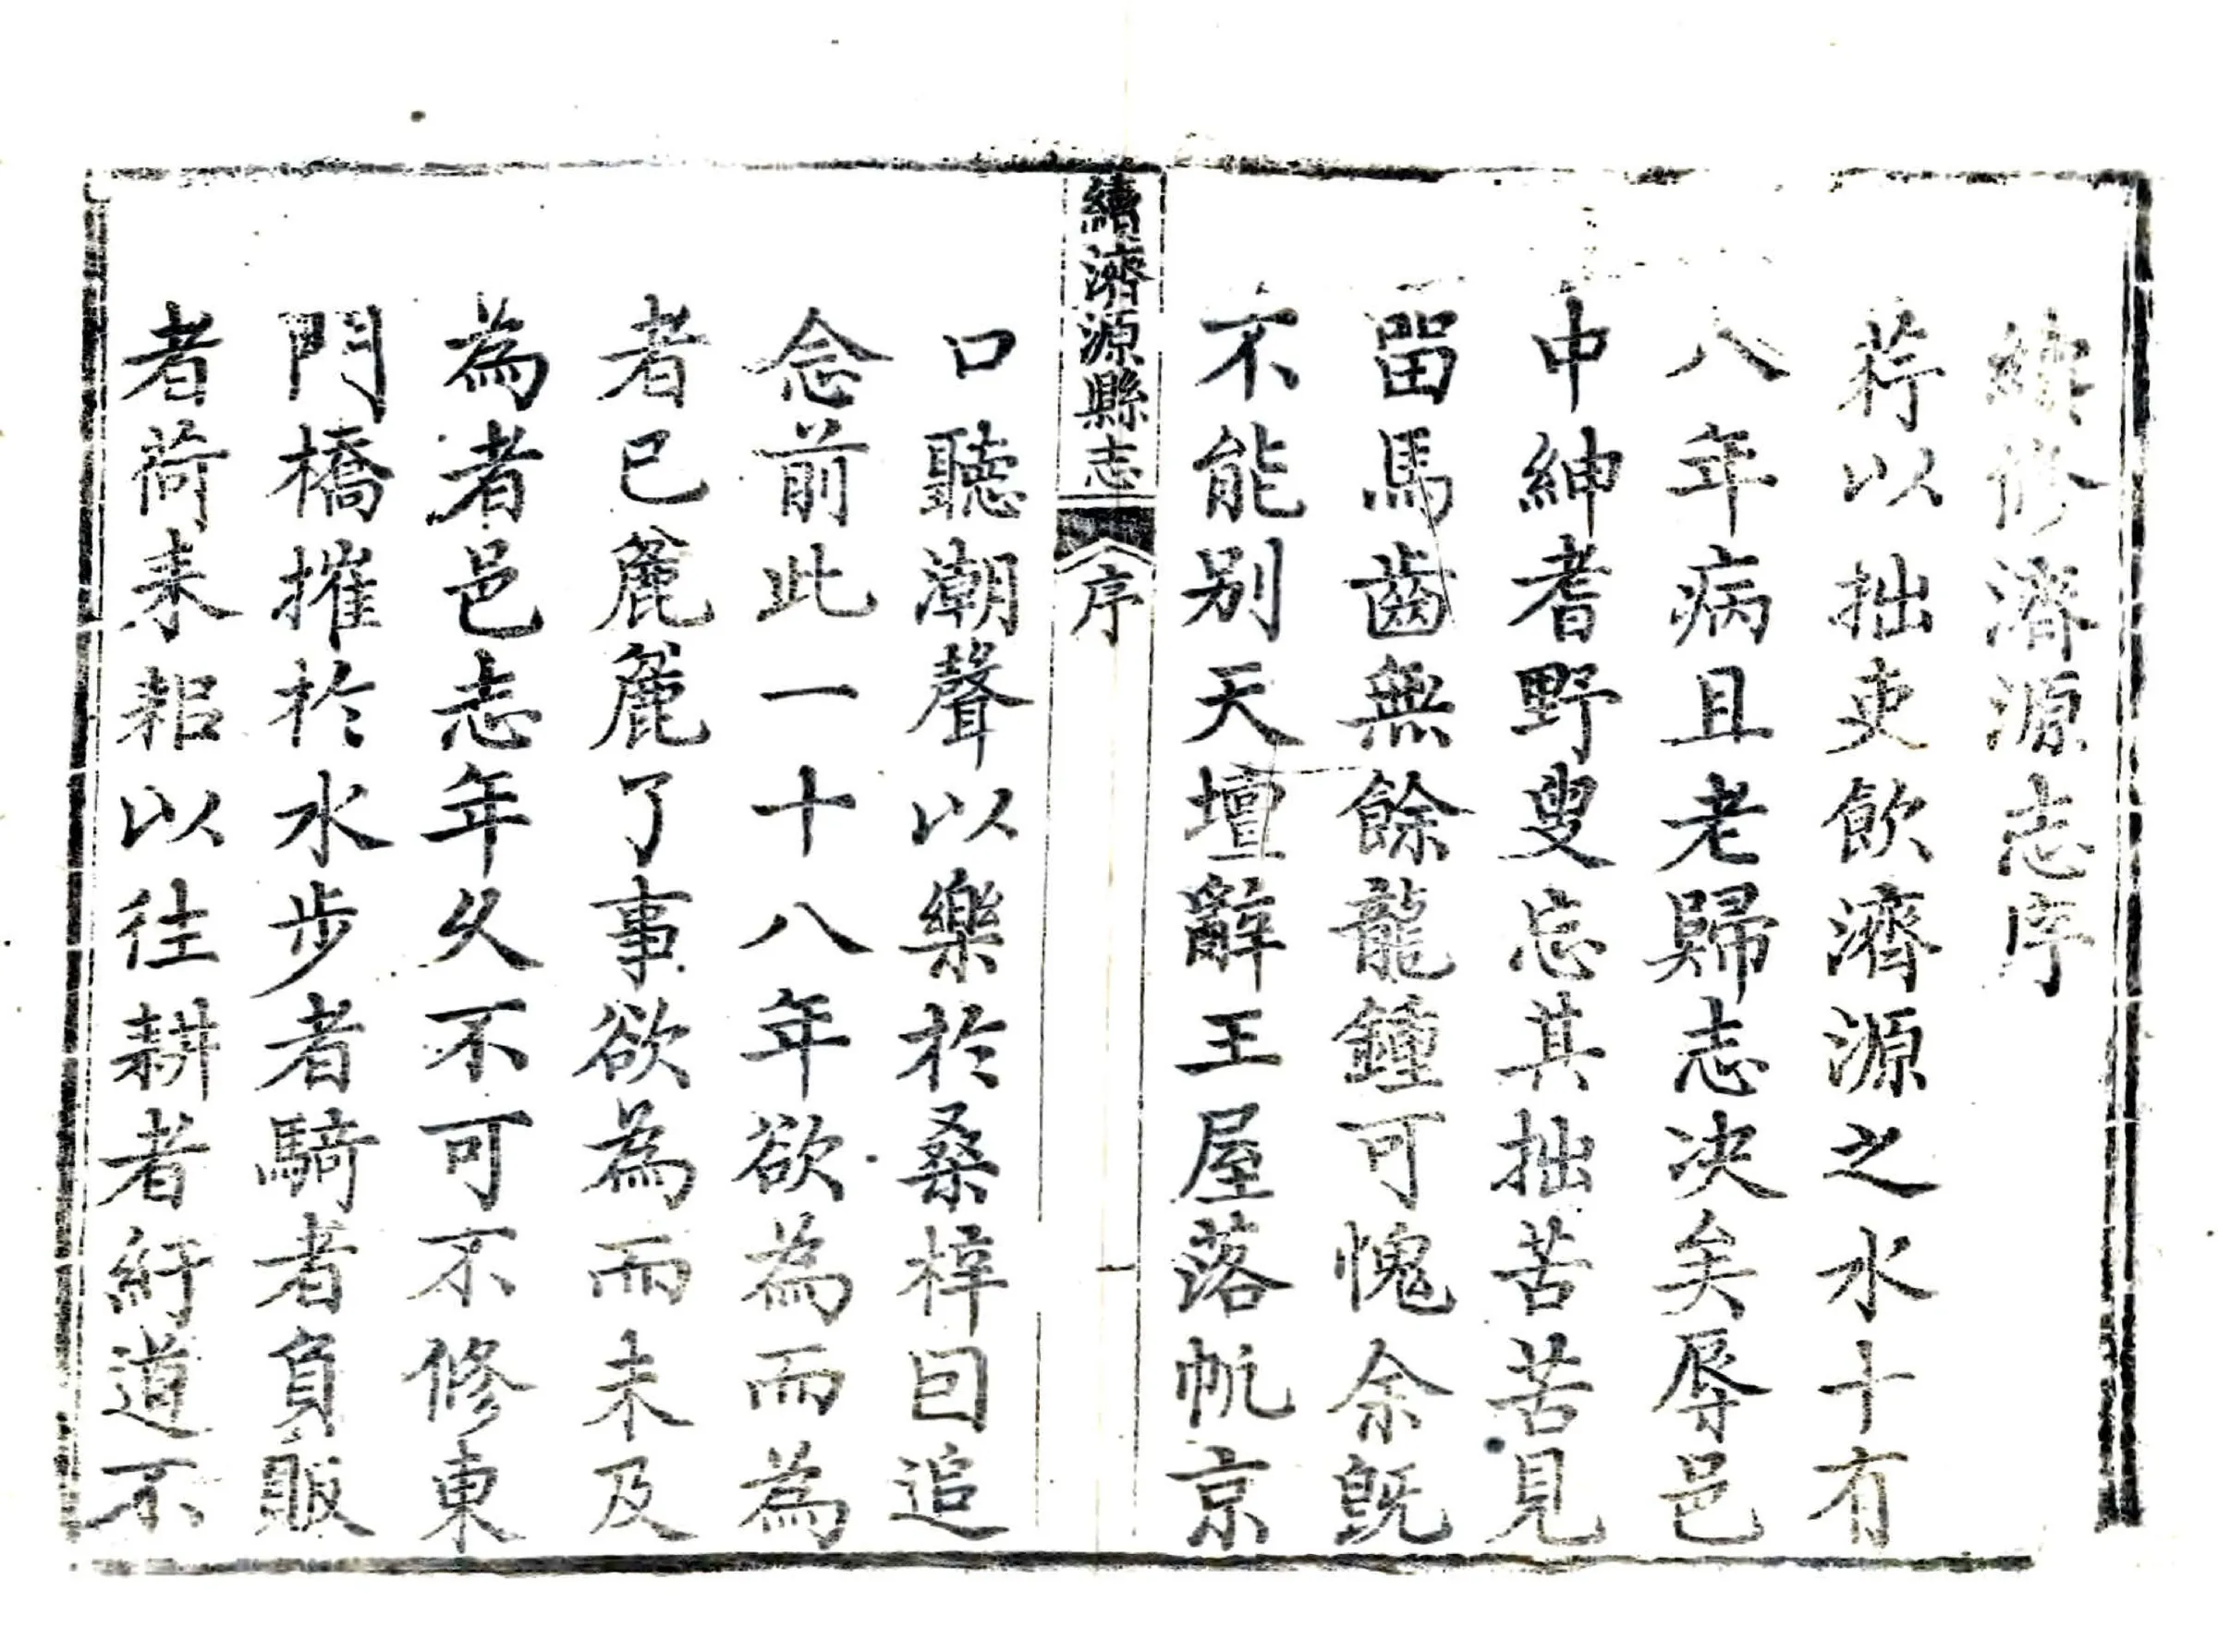 續修濟源志序
荇以拙吏飲濟源之水十有
八年病且老歸志决矣辱邑
中紳耆野叟忘其拙苦苦見
畱馬齒無餘龍鍾可愧余旣
不能别天壇辭王屋落帆京
續濟源縣志
序
一
口聽潮聲以樂於桑梓囙追
念前此一十八年欲為而為
者已麄麄了事欲為而未及
為者邑志年久不可不修東
門橋摧於水步者騎者負販
者荷耒耜以往耕者紆道不